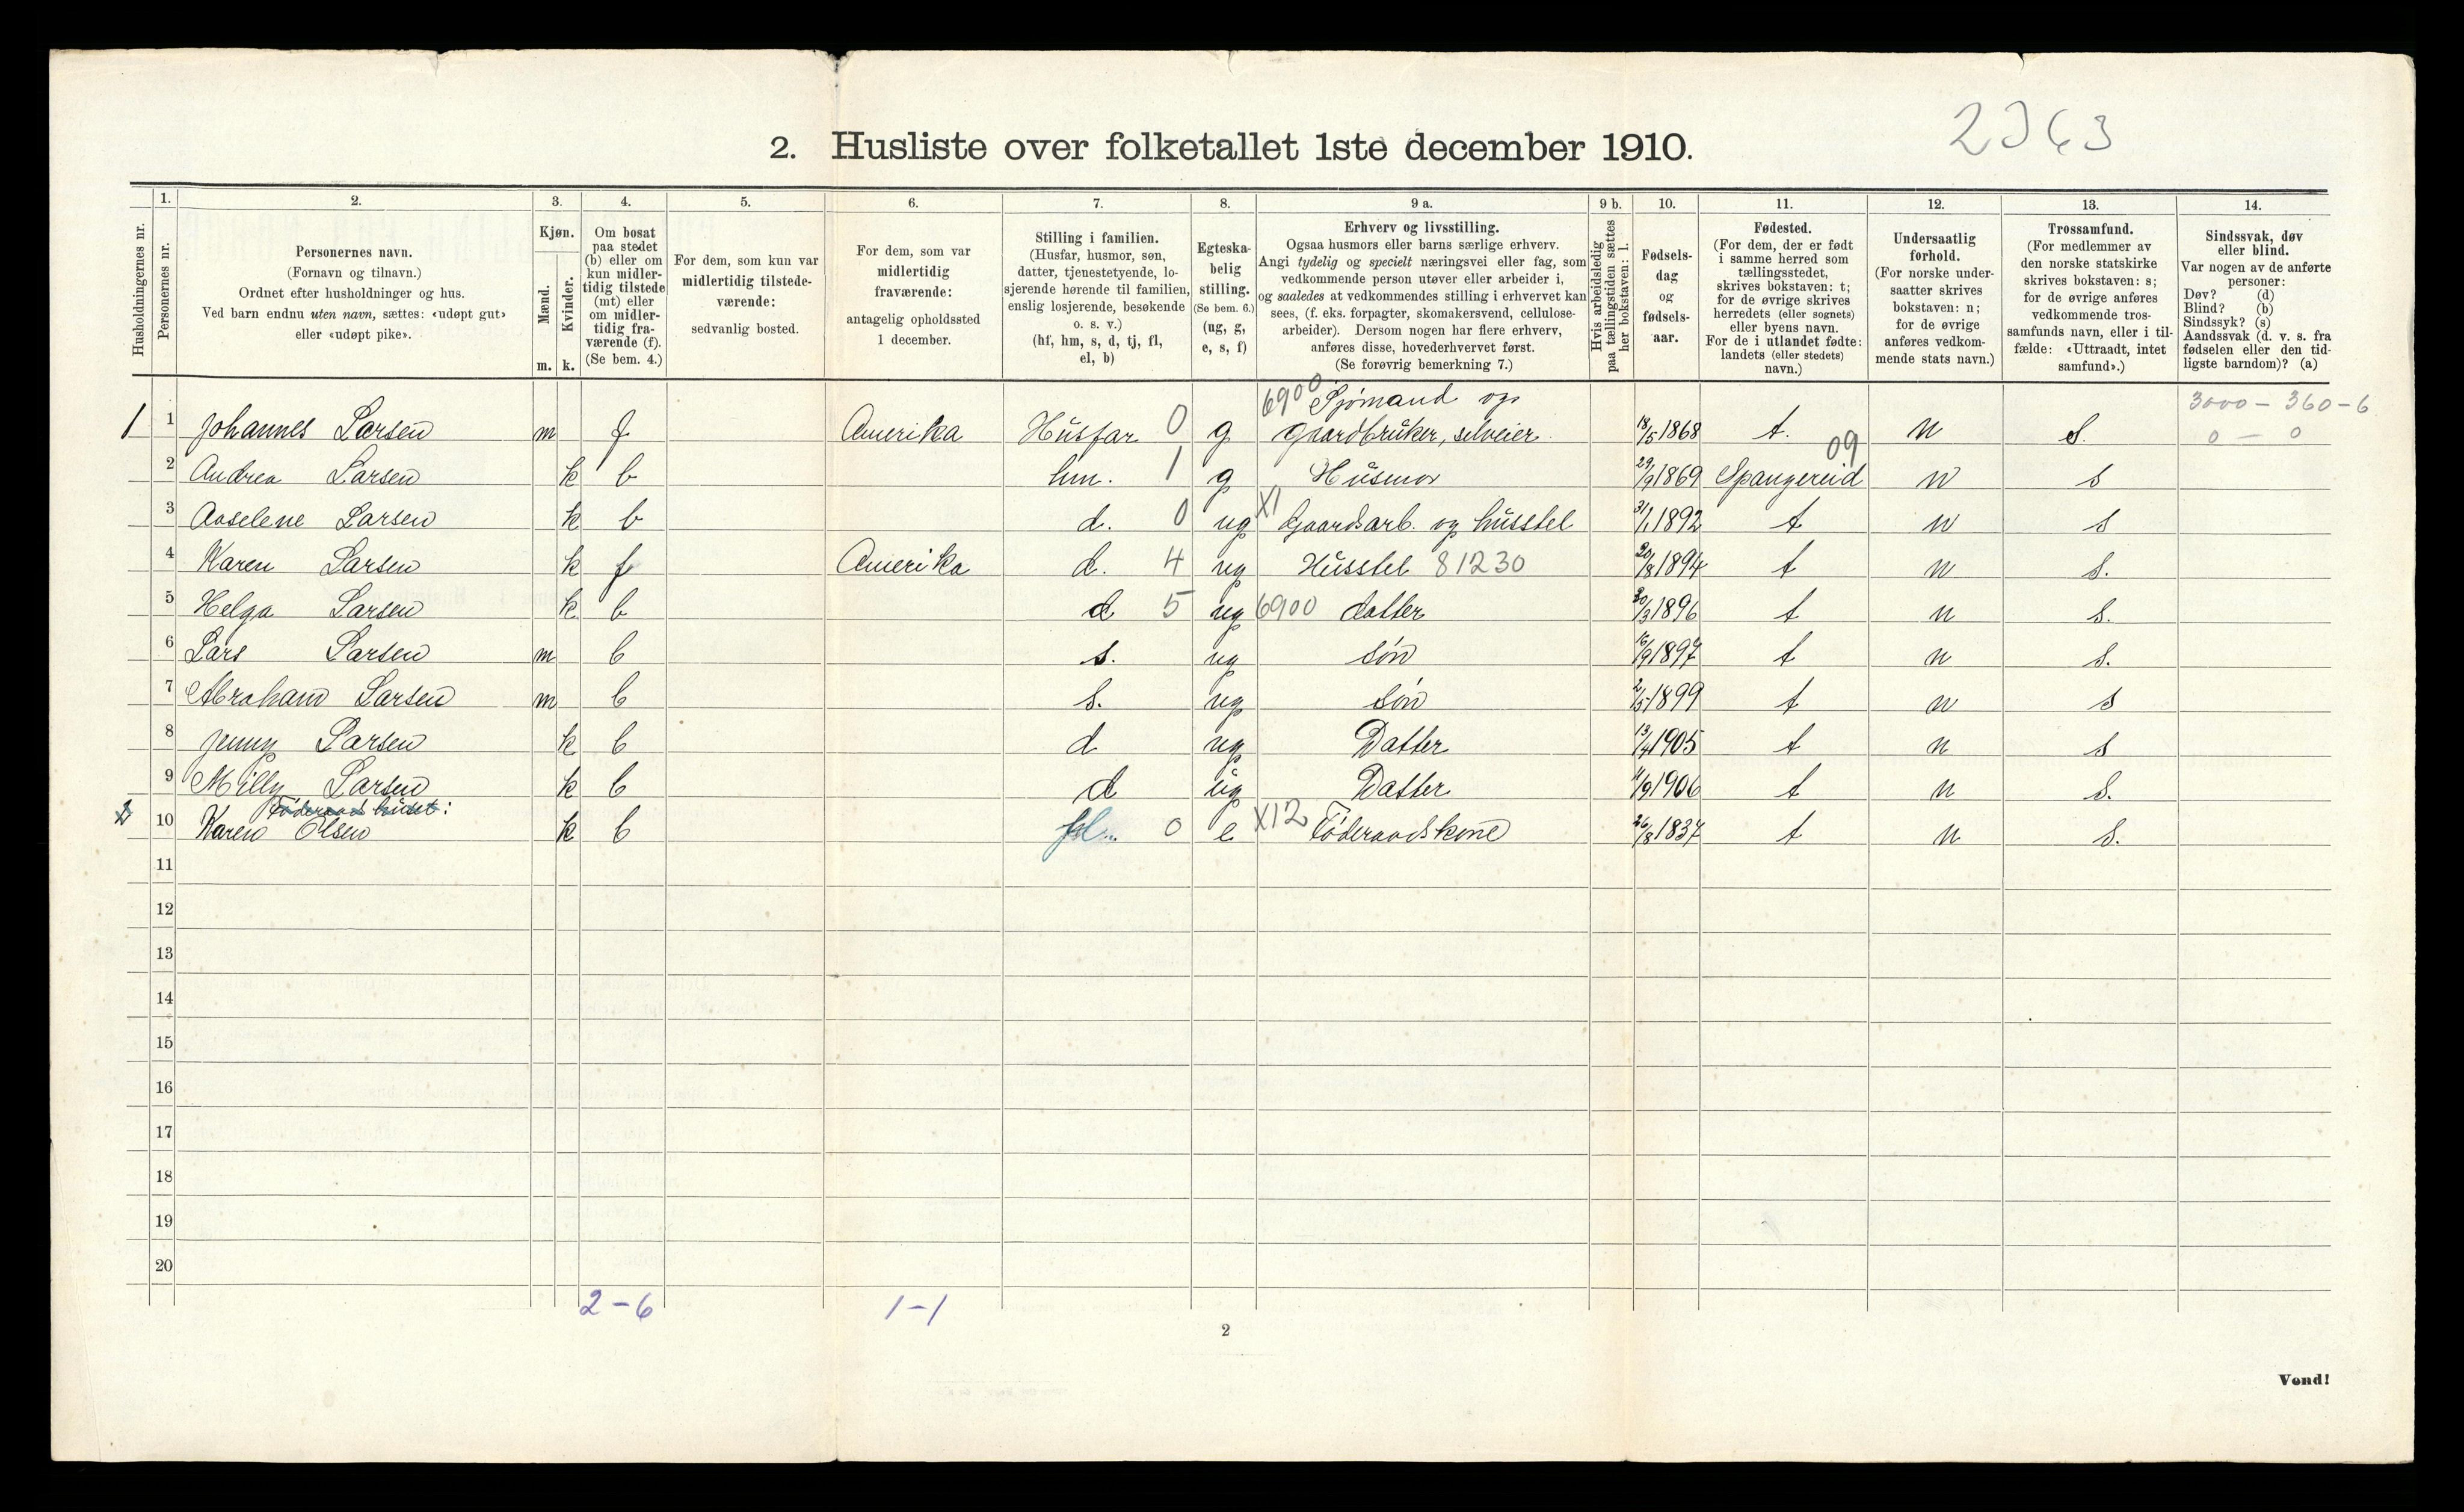 2363
2. Husliste over folketallet 1ste december 1910.
Husholdningernes nr.
1. Personernes nr.
2. Personernes navn.
(Fornavn og tilnavn.)
Ordnet efter husholdninger og hus.
Ved barn endnu uten navn, sættes: «udøpt gut»
eller «udøpt pike».
3. Kjøn.
Mænd. m.
Kvinder. k.
4. Om bosat
paa stedet
(b) eller om
kun midler-
tidig tilstede
(mt) eller
om midler-
tidig fra-
værende (f).
(Se bem. 4.)
5. For dem, som kun var
midlertidig tilstede-
værende:
sedvanlig bosted.
6. For dem, som var
midlertidig
fraværende:
antagelig opholdssted
1 december.
7. Stilling i familien.
(Husfar, husmor, søn,
datter, tjenestetyende, lo-
sjerende hørende til familien,
enslig losjerende, besøkende
o. s. v.)
(hf, hm, s, d, tj, fl,
el, b)
8. Egteska-
belig
stilling.
(Se bem. 6.)
(ug, g,
e, s, f)
9 a. Erhverv og livsstilling.
Ogsaa husmors eller barns særlige erhverv.
Angi tydelig og specielt næringsvei eller fag, som
vedkommende person utøver eller arbeider i,
og saaledes at vedkommendes stilling i erhvervet kan
sees, (f. eks. forpagter, skomakersvend, cellulose-
arbeider). Dersom nogen har flere erhverv,
anføres disse, hovederhvervet først.
(Se forøvrig bemerkning 7.)
9 b. Hvis arbeidsledig
paa tællingstiden sættes
her bokstaven: l.
10. Fødsels-
dag
og
fødsels-
aar.
11. Fødested.
(For dem, der er født
i samme herred som
tællingsstedet,
skrives bokstaven: t;
for de øvrige skrives
herredets (eller sognets)
eller byens navn.
For de i utlandet fødte:
landets (eller stedets)
navn.)
12. Undersaatlig
forhold.
(For norske under-
saatter skrives
bokstaven: n;
for de øvrige
anføres vedkom-
mende stats navn.)
13. Trossamfund.
(For medlemmer av
den norske statskirke
skrives bokstaven: s;
for de øvrige anføres
vedkommende tros-
samfunds navn, eller i til-
fælde: «Uttraadt, intet
samfund».)
14. Sindssvak, døv
eller blind.
Var nogen av de anførte
personer:
Døv? (d)
Blind? (b)
Sindssyk? (s)
Aandssvak (d. v. s. fra
fødselen eller den tid-
ligste barndom)? (a)
6900 Sjømand og 3000 - 360 - 6
1 1 Johannes Larsen m f Amerika Husfar 0 g gaardbruker, selveier 18/5 1868 t. n s. 0 - 0
09
2 Andrea Larsen k b hm. 1 g Husmor 29/9 1869 Spangereid n s
3 Aaselene Larsen k b d. 0 ug XI Gaardsarb. og husstel 31/1 1892 t n s
4 Karen Larsen k f Amerika d. 4 ug Husstel 81230 20/8 1894 t n s.
5 Helga Larsen k b d 5 ug 6900 datter 30/3 1896 t n s.
6 Lars Larsen m b s. ug søn 16/9 1897 t n s.
7 Abraham Larsen m b s. ug søn 2/5 1899 t n s
8 Jenny Larsen k b d ug Datter 13/4 1905 t n s
9 Milly Larsen k b d ug Datter 11/9 1906 t n s.
Føderaads huset:
2 10 Karen Olsen k b 0 e X12 Føderaadskone 26/8 1837 t n s.
11
12
13
14
15
16
17
18
19
20
2-6 1-1
2
Vend!